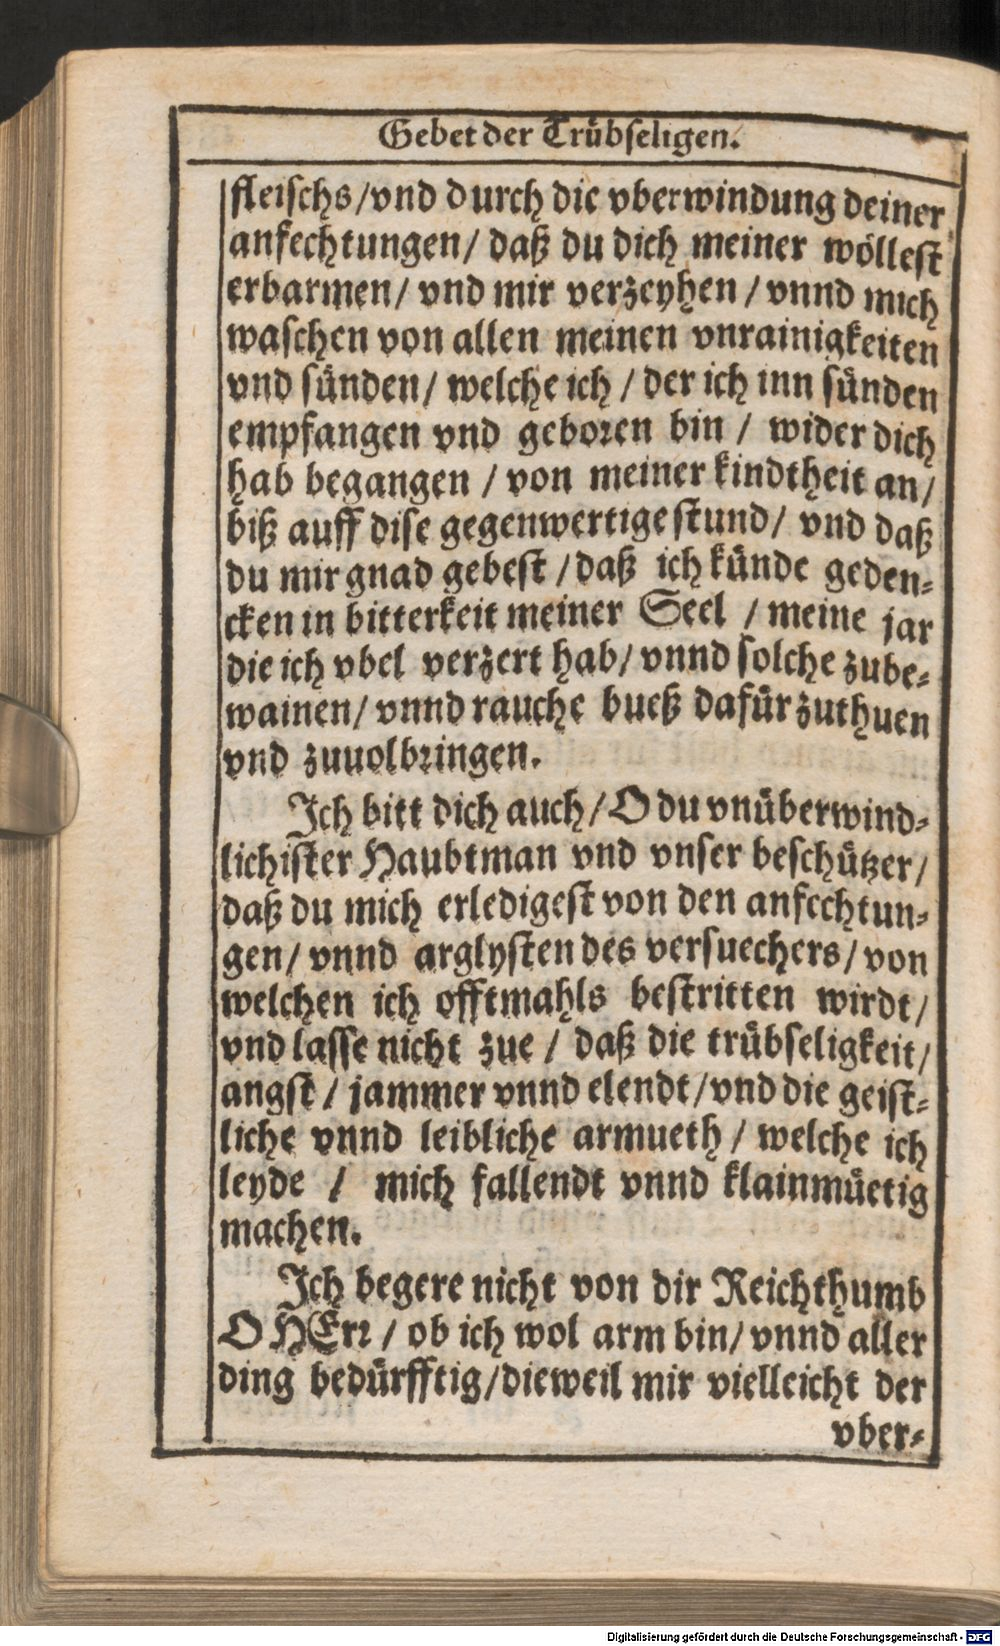 Gebet der Trübseligen.
fleischs/vnd durch die vberwindung deiner
anfechtungen/ daß du dich meiner wöllest
erbarmen/ vnd mir verzeyhen / vnnd mich
waschen von allen meinen vnrainigkeiten
vnd sünden/ welche ich / der ich inn sünden
empfangen vnd geboren bin / wider dich
hab begangen / von meiner kindtheit an/
biß auff dise gegenwertige stund/ vnd daß
du mir gnad gebest /daß ich künde geden-
cken in bitterkeit meiner Seel / meine jar
die ich vbel verzert hab/ vnnd solche zube-
wainen/ vnnd rauche bueß dafür zuthuen
vnd zuuolbringen.
Ich bitt dich auch/ O du vnüberwind-
lichister Haubtman vnd vnser beschützer/
daß du mich erledigest von den anfechtun-
gen/ vnnd arglysten des versuechers/ von
welchen ich offtmahls bestritten wirdt/
vnd lasse nicht zue / daß die trübseligkeit/
angst / jammer vnnd elendt/vnd die geist-
liche vnnd leibliche armueth / welche ich
leyde / mich fallendt vnnd klainmüetig
machen.
Ich begere nicht von dir Reichthumb
O HErr / ob ich wol arm bin/ vnnd aller
ding bedürfftig/dieweil mir vielleicht der
vber-
Digitalisierung gefördert durch die Deutsche Forschungsgemeinschaft - DFG